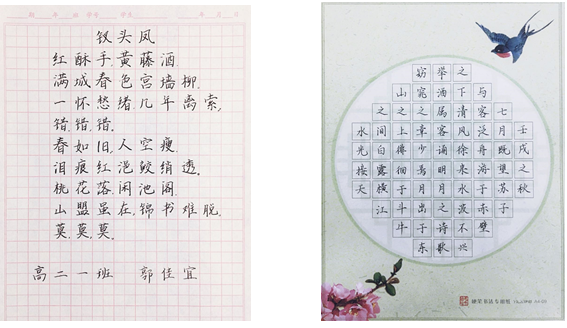 钗头凤
红酥手,黄藤酒
满城春色宫墙柳,
一怀愁绪几年离索,
错,错,错,
春如旧,人空瘦,
泪痕红浥鲛绡透,
桃花落闲池阁,
山盟虽在,锦书难脱,
莫,莫,莫,
高二一班 郭佳宜
壬戌之秋
七月既望苏子
与客泛舟游于赤壁
之下清风徐来水波不兴
举洒属客诵明月之诗歌
窈窕之章少焉月出于东
山之上徘徊于斗牛
之间白露横江
水光接天
硬笔书法专用纸